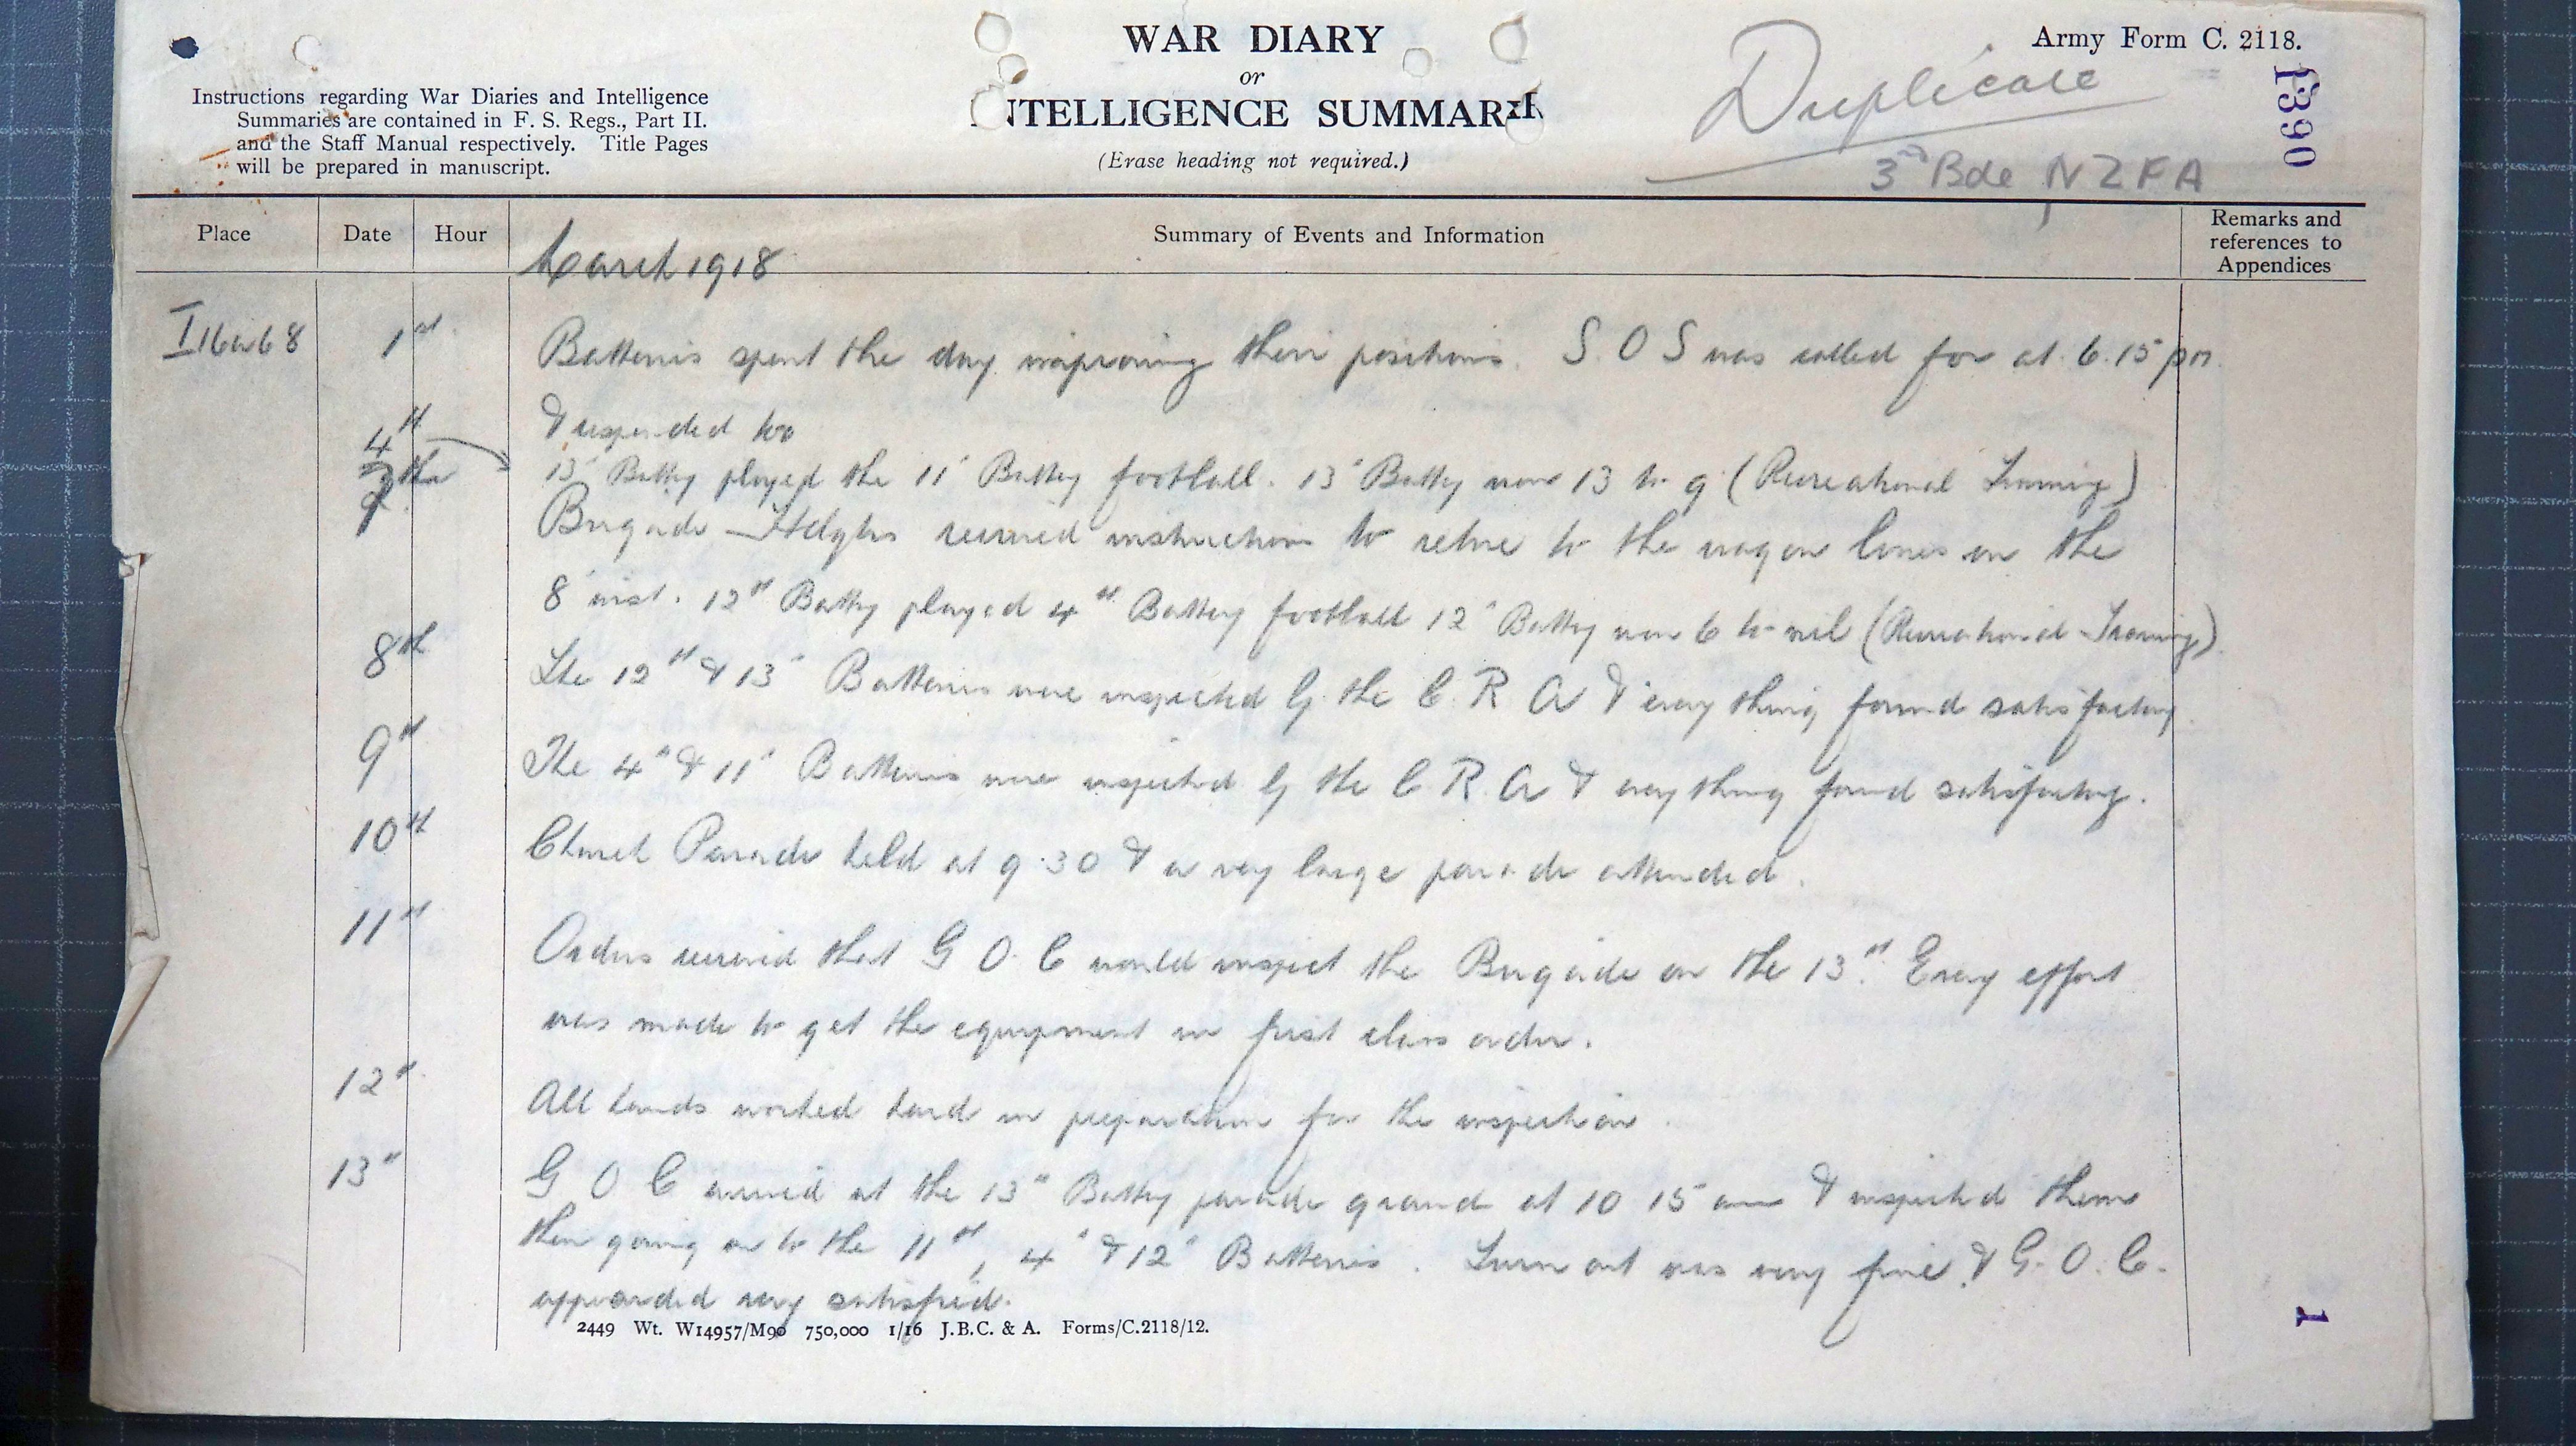 WAR DIARY
or
INTELLIGENCE SUMMARY
(Erase heading not required.)
Army Form C. 2118.
Duplicate
3rd Bde NZFA
1390
Instructions regarding War Diaries and Intelligence
Summaries are contained in F. S. Regs., Part II.
and the Staff Manual respectively. Title Pages
will be prepared in manuscript.
Place Date Hour Summary of Events and Information Remarks and references to Appendices
March 1918
1st Batteries spent the day improving their positions. S.O.S was called for at 6.15 pm
& responded too
4th 13" Battery played the 11" Battery football. 13" Battery won 13 to 9 (Recreational Training)
7th Brigade Hdqtrs received instructions to retire to the wagon lines on the
8 inst. 12th Battery played 4th Battery football 12" Battery won 6 to nil (Recreational Training)
8th The 12th & 13" Batteries were inspected by the C R A & everything found satisfactory.
9th The 4" & 11" Batteries were inspected by the C.R.A & everything found satisfactory.
10th Church Parade held at 9.30 & a very large parade attended.
11th Orders received that G O.C would inspect the Brigade on the 13th. Every effort
was made to get the equipment in first class order.
12th All hands worked hard in preparation for the inspection.
13th G O C arrived at the 13" Battery parade ground at 10 15 am & inspected them
then going on to the 11th, 4" & 12" Batteries. Turn out was very fine & G.O.C.
appearded very satisfied.
2449 Wt. W14957/M90 750,000 1/16 J.B.C. & A. Forms/C.2118/12.
1